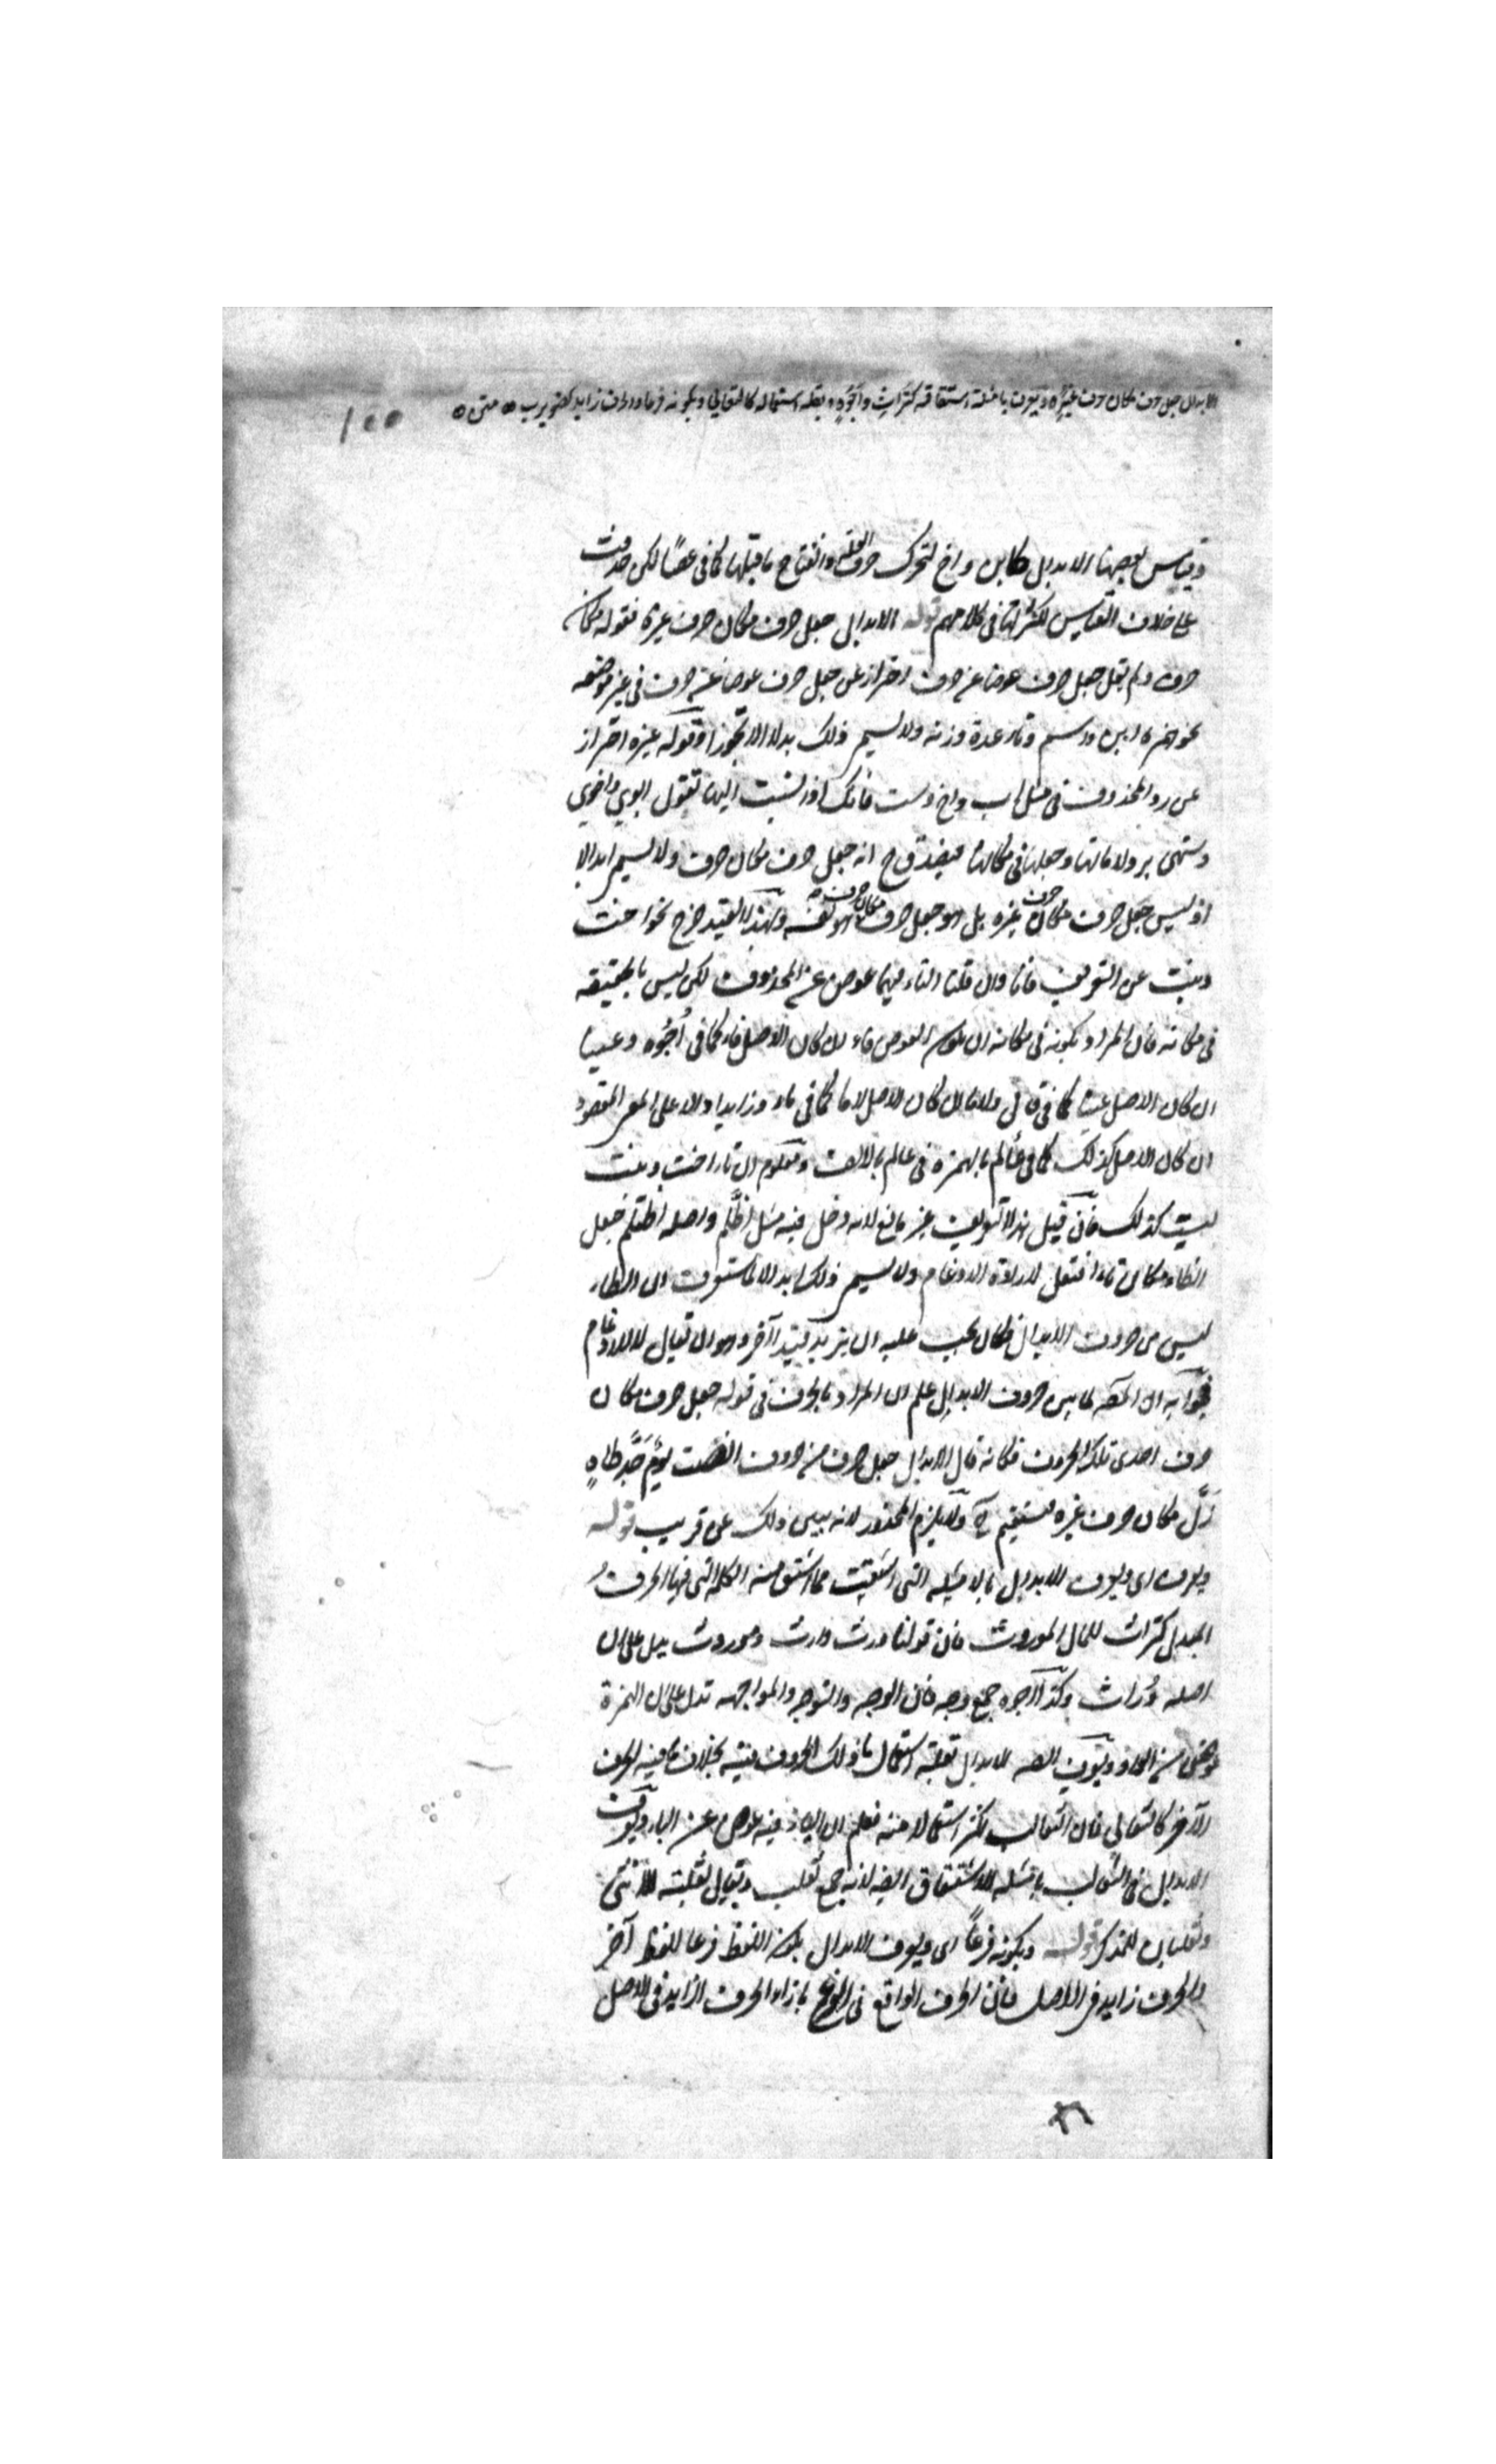 الابدال جعل حرف مكان حرف غيره ويعرف بامثلة اشتقاقه كتراث واجوه وبقلة استعماله كالثعالي وبكونه فرعا والحرف زايد كضويرب متن
١٥٥
وقياس بعضها الابدال كابن واخ لتحرك حرف العلة وانفتاح ما قبلها كما في عصا لكن حذفت
على خلاف القياس لكثرتها في كلامهم قوله الابدال جعل حرف مكان حرف غيره فقوله مكان
حرف ولم يقل جعل حرف عوضا عن حرف احتراز عن جعل حرف عوضا عن حرف في غير موضعه
نحو همزة ابن واسم وتاء عدة وزنة ولا يسمى ذلك بدلا الا تجوزا وقوله غيره احتراز
عن رد المحذوف في مثل اب واخ وست فانك اذا نسبت اليها تقول ابوي واخوي
وستهي برد لاماتها وجعلها في مكانها فيصدق ح انه جعل حرف مكان حرف ولا يسمى ابدالا
اذ ليس جعل حرف مكان حرف غيره بل هو جعل حرف مكان حرف هو نفسه وبهذا القيد خرج نحو اخت
وبنت عن التعريف فانا وان قلنا التاء فيهما عوض عن المحذوف لكن ليس بالحقيقة
في مكانه فان المراد بكونه في مكانه ان يكون العوض فاء ان كان الاصل فاء كما في اُجُوه وعينا
ان كان الاصل عينا كما في قال ولاما ان كان الاصل لاما كما في ماء وزايدا دالا على المعنى المقصود
ان كان الاصل كذلك كما في عألم بالهمزة في عالم بالالف ومعلوم ان تاء اخت وبنت
ليست كذلك فان قيل هذا التعريف غير مانع لانه دخل فيه مثل اظّلم واصله اظتلم جعل
الظاء مكان تاء افتعل لارادة الادغام ولا يسمى ذلك ابدالا لما ستعرف ان الظاء
ليس من حروف الابدال فكان يجب عليه ان يزيد قيدا آخر وهو ان يقال لا للادغام
فجوابه ان المص لما بين حروف الابدال علم ان المراد بالحرف في قوله جعل حرف مكان
حرف احدى تلك الحروف فكانه قال الابدال جعل حرف من حروف انصت يومَ جَدُّ طاهٍ
زَلَّ مكان حرف غيره فيستقيم ح ولا يلزم المحذور لانه يبين ذلك عن قريب قوله
ويعرف اي ويعرف الابدال بالامثلة التي اشتقت مما اشتق منه الكلمة التي فيها الحرفُ
المبدل كتراث للمال الموروث فان قولنا ورث وارث وموروث يدل على ان
اصله وُراث وكذا اجوه جمع وجه فان الوجه والتوجه والمواجهه تدل على ان الهمزة
عوض من الواو ويعرف ايضا الابدال بقلة استعمال ما ذلك الحرف فيه بخلاف ما فيه الحرف
الآخر كالثعالي فان الثعالب اكثر استعمالا منه فعلم ان الياء فيه عوض عن الباء ويعرف
الابدال في الثعالب بامثلة الاشتقاق ايضا لانه جمع ثعلب ويقال ثعلبة للانثى
وثعلبان للمذكر قوله وبكونه فرعاً اي ويعرف الابدال بكون اللفظ فرعا للفظ آخر
والحرف زايد في الاصل فان الحرف الواقع في الفرع بازاء الحرف الزايد في الاصل